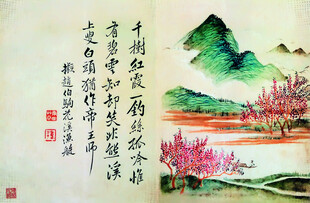 千樹紅霞釣絲孤冷惟
有碧雲知却笑非熊溪
上叟白頭猶作帝王師
擬趙伯駒花溪漁艇